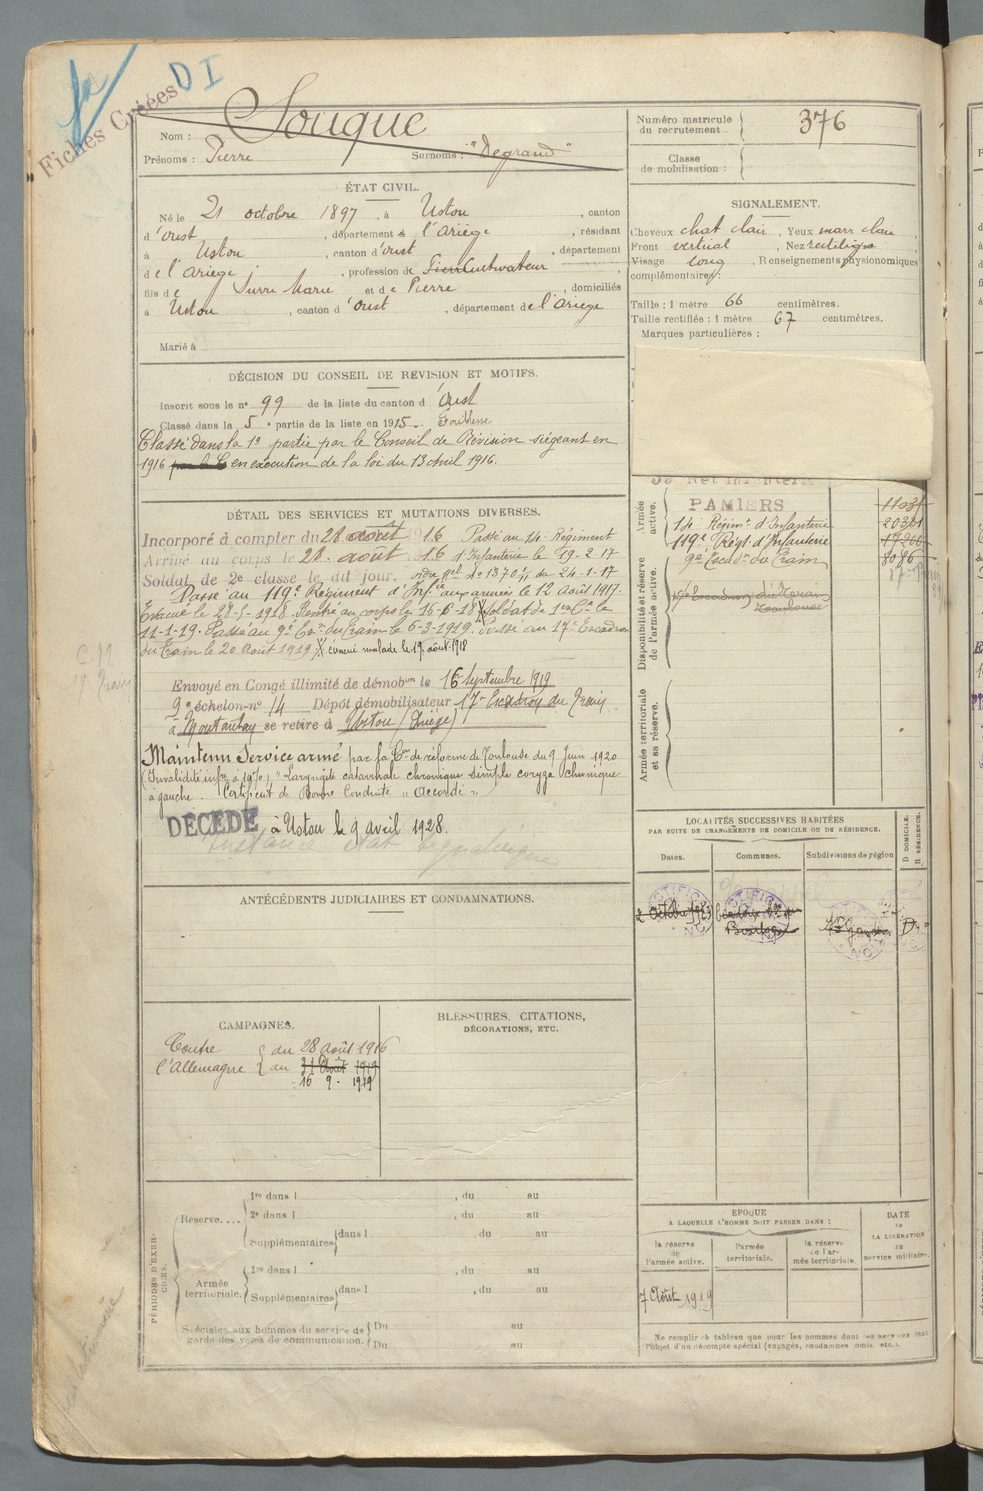 Fiches Créées
DI
Nom : Souque
Prénoms : Pierre Surnoms : "Degrand"
Numéro matricule du recrutement. 376
Classe de mobilisation :
ÉTAT CIVIL.
Né le 21 octobre 1897, à Ustou, canton
d'oust, département de l'Ariège, résidant
à Ustou, canton d'oust, département
de l'Ariège, profession de Cultivateur
fils de Pierre Marie et de Pierre, domiciliés
à Ustou, canton d'oust, département de l'Ariège
Marié à
SIGNALEMENT.
Cheveux chat clair, Yeux marr clair
Front vertical, Nez rectiligne
Visage long, Renseignements physionomiques
complémentaires:
Taille : 1 mètre 66 centimètres.
Taille rectifiée : 1 mètre 67 centimètres.
Marques particulières :
DÉCISION DU CONSEIL DE REVISION ET MOTIFS.
Inscrit sous le n° 99 de la liste du canton d'Oust
Classé dans la 5e partie de la liste en 1915. Faiblesse
Classé dans la 1e partie par le Conseil de Révision siégeant en
1916 en exécution de la loi du 13 Avril 1916.
DÉTAIL DES SERVICES ET MUTATIONS DIVERSES.
Incorporé à compter du 28 août 1916 Passé au 14e Régiment
Arrivé au corps le 28 août 1916 d'Infanterie le 19.2.17
Soldat de 2e classe le dit jour. ordre du 24-1-17
Passé au 119e Régiment d'Infie aux armées le 12 Août 1917.
Evacué le 28-5-1918. Rentré au corps le 16-6-18 X Soldat de 1re Cl. le
11-1-19. Passé au 9e Eson du Train le 6-3-1919. Passé au 17e Escadron
du Train le 20 Août 1919. X évacué malade le 19 août 1918
Envoyé en Congé illimité de démobon le 16 Septembre 1919
9e échelon n° 14 Dépôt démobilisateur 17e Escadron du Train
à Montauban se retire à Ustou (Ariège)
Maintenu Service armé par la Con de réforme de Toulouse du 9 Juin 1920
(Invalidité infre à 10%) "Laryngite catarrhale chronique simple coryza chronique
à gauche. Certificat de Bonne Conduite "Accordé"
DÉCÉDÉ à Ustou le 9 avril 1928.
Armée active.
PAMIERS
14e Régimt d'Infanterie 20381
119e Régt d'Infanterie 17200
Disponibilité et réserve de l'armée active.
9e Escadon du Train 8086
17e Escadron du Train
Toulouse
Armée territoriale et sa réserve.
LOCALITÉS SUCCESSIVES HABITÉES
PAR SUITE DE CHANGEMENTS DE DOMICILE OU DE RÉSIDENCE.
Dates. Communes. Subdivisions de région D DOMICILE. R RÉSIDENCE.
2 Octobre 1923
ANTÉCÉDENTS JUDICIAIRES ET CONDAMNATIONS.
CAMPAGNES.
Contre l'Allemagne
du 28 Août 1916
au 21 Août 1919
16 - 9 - 1919
BLESSURES, CITATIONS,
DÉCORATIONS, ETC.
PÉRIODES D'EXERCICES.
Réserve....
1re dans l , du au
2e dans l , du au
Supplémentaires dans l , du au
Armée territoriale.
1re dans l , du au
Supplémentaires dans l , du au
Spéciales aux hommes du service de garde des voies de communication.
Du au
Du au
EPOQUE
A LAQUELLE L'HOMME DOIT PASSER DANS :
DATE DE LA LIBÉRATION DU service militaire.
la réserve de l'armée active.
l'armée territoriale.
la réserve de l'armée territoriale.
7 Août 1919
Ne remplir ce tableau que pour les hommes dont les services font
l'objet d'un décompte spécial (engagés, condamnés, omis, etc.).